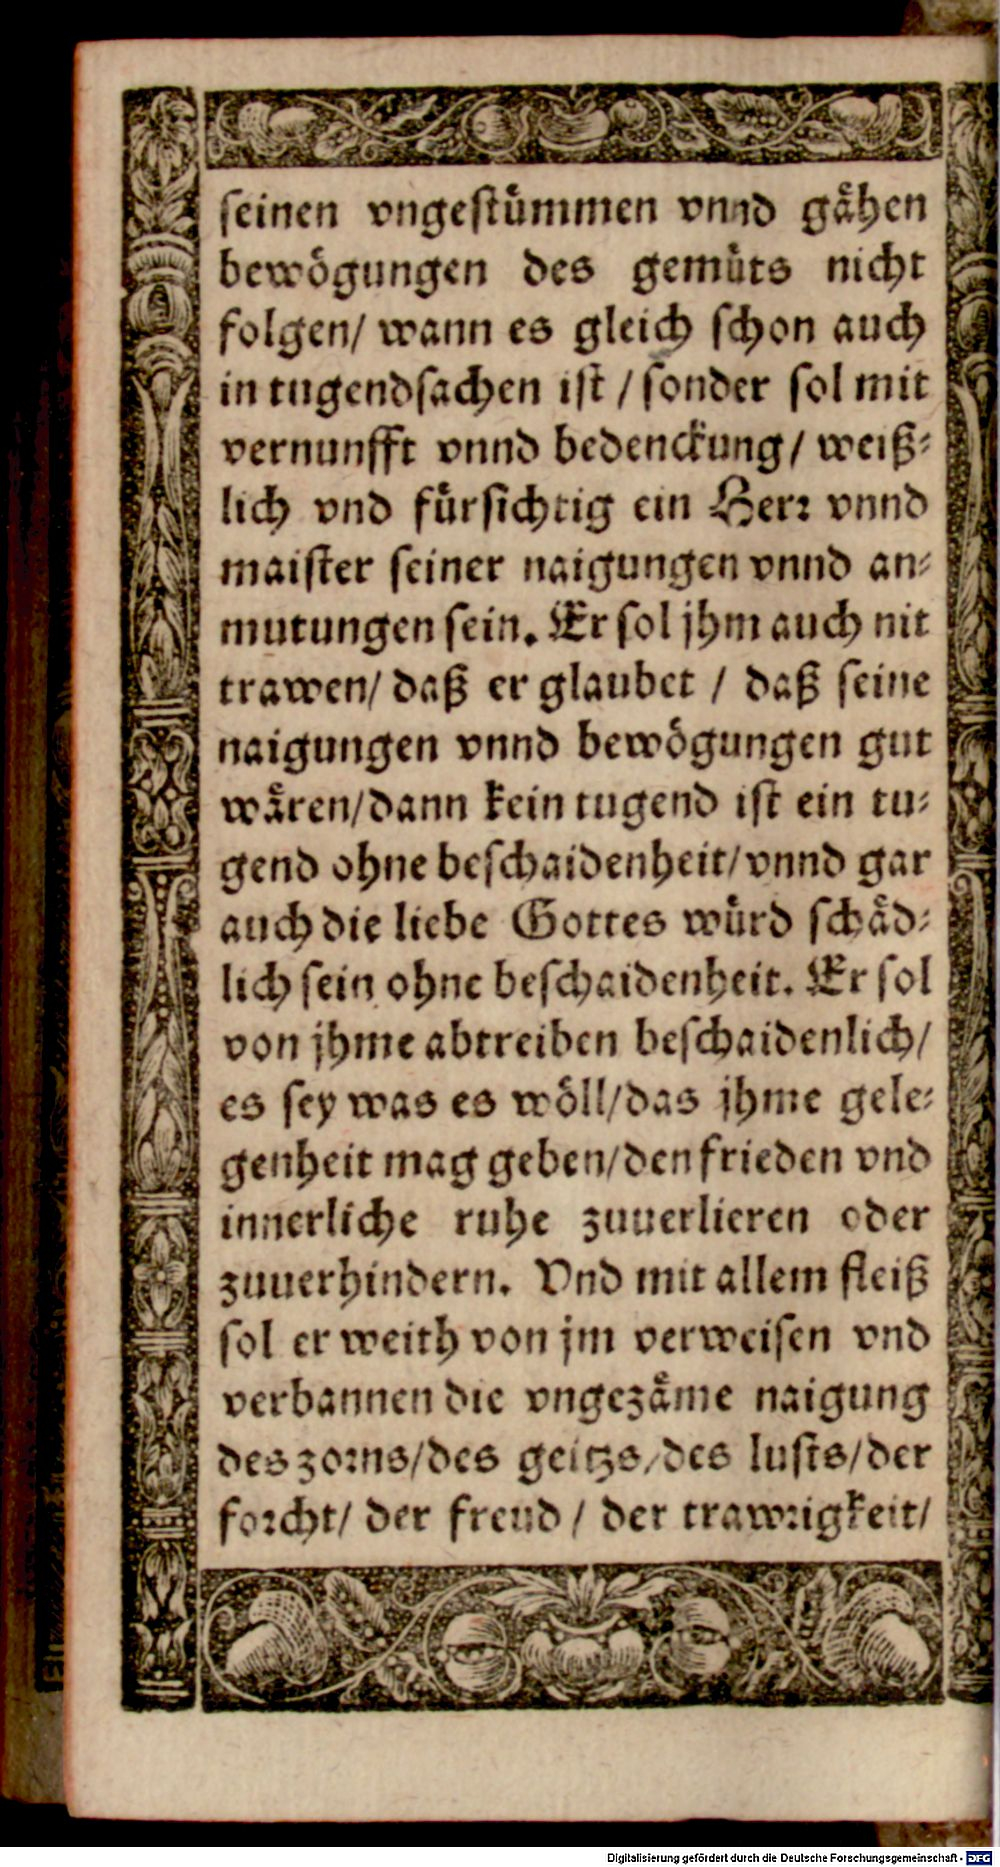 seinen vngestuͤmmen vnnd gaͤhen
bewoͤgungen des gemuͤts nicht
folgen/ wann es gleich schon auch
in tugendsachen ist / sonder sol mit
vernunfft vnnd bedenckung/ weiß⸗
lich vnd fuͤrsichtig ein Herr vnnd
maister seiner naigungen vnnd an⸗
mutungen sein. Er sol jhm auch nit
trawen/ daß er glaubet / daß seine
naigungen vnnd bewoͤgungen gut
waͤren/dann kein tugend ist ein tu⸗
gend ohne beschaidenheit/vnnd gar
auch die liebe Gottes wuͤrd schaͤd⸗
lich sein ohne beschaidenheit. Er sol
von jhme abtreiben beschaidenlich/
es sey was es woͤll/das jhme gele⸗
genheit mag geben/den frieden vnd
innerliche ruhe zuuerlieren oder
zuuerhindern. Vnd mit allem fleiß
sol er weith von jm verweisen vnd
verbannen die vngezaͤme naigung
des zorns/des geitzs/des lusts/der
forcht/ der freud / der trawrigkeit/
Digitalisierung gefördert durch die Deutsche Forschungsgemeinschaft - DFG